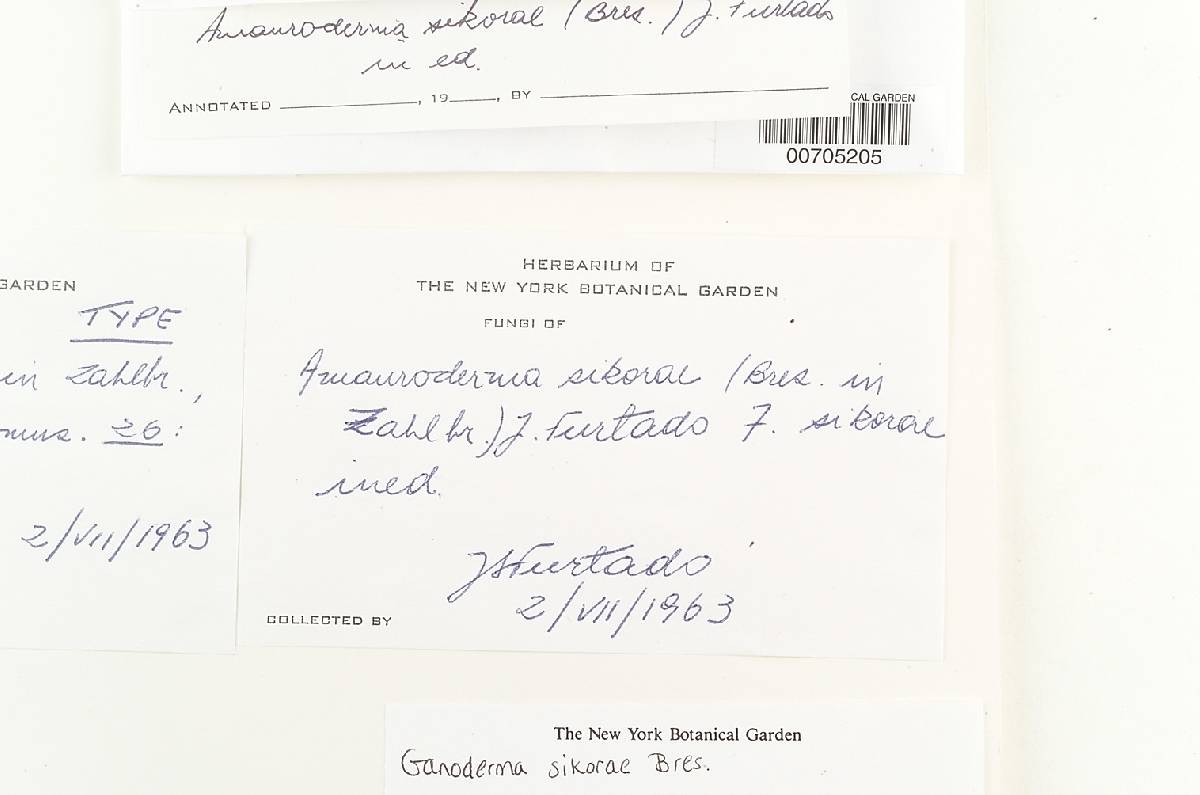 Amauroderma sikorae (Bres.) J. Furtado
in ed.
ANNOTATED ________, 19____, BY ________
CAL GARDEN
00705205
GARDEN
TYPE
in Zahlbr.,
mus. 26:
2/VII/1963
HERBARIUM OF
THE NEW YORK BOTANICAL GARDEN
FUNGI OF
Amauroderma sikorae (Bres. in
Zahlbr.) J. Furtado F. sikorae
ined.
JSFurtado
2/VII/1963
COLLECTED BY
The New York Botanical Garden
Ganoderma sikorae Bres.